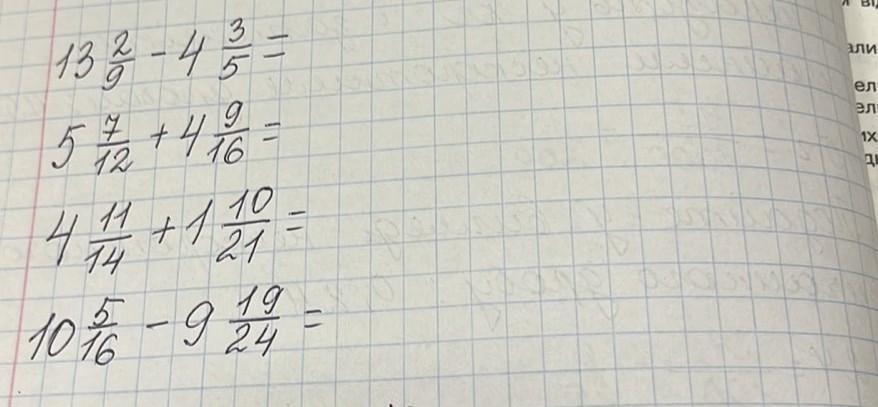 13 2/9 - 4 3/5 =
5 7/12 + 4 9/16 =
4 11/14 + 1 10/21 =
10 5/16 - 9 19/24 =
али
ел
ел
их